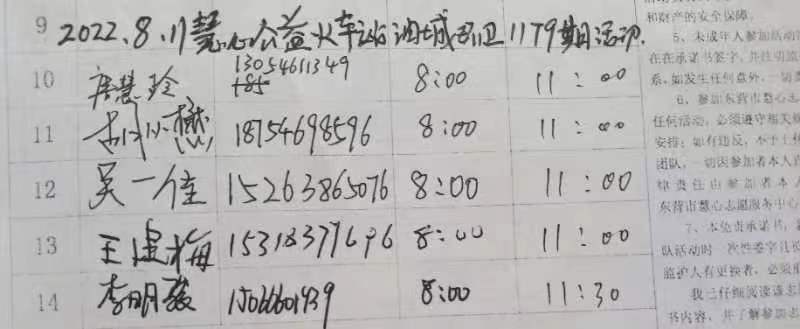 9 2022.8.11慧心公益火车站油城卫 1179期活动
10 唐慧玲 13054611349 8:00 11:00
185
11 胡小懋 18754698596 8:00 11:00
12 吴一佳 15263865076 8:00 11:00
13 王建梅 15318377696 8:00 11:00
14 李明 15066601939 8:00 11:30
和财产的安全保障。
5、未成年人参加活动
在在承诺书签字，并
系，如发生任何意外，一切
6、参加东营市慧心志
任何活动，必须遵守相关
安排；如有违反，不予
团队，一切因参加者本人
律责任由参加者本人
东营市慧心志愿服务中心
7、本免责承诺书，
队活动时一次性签字
监护人有更换者，必须
我已仔细阅读该
书内容，并了解参加志